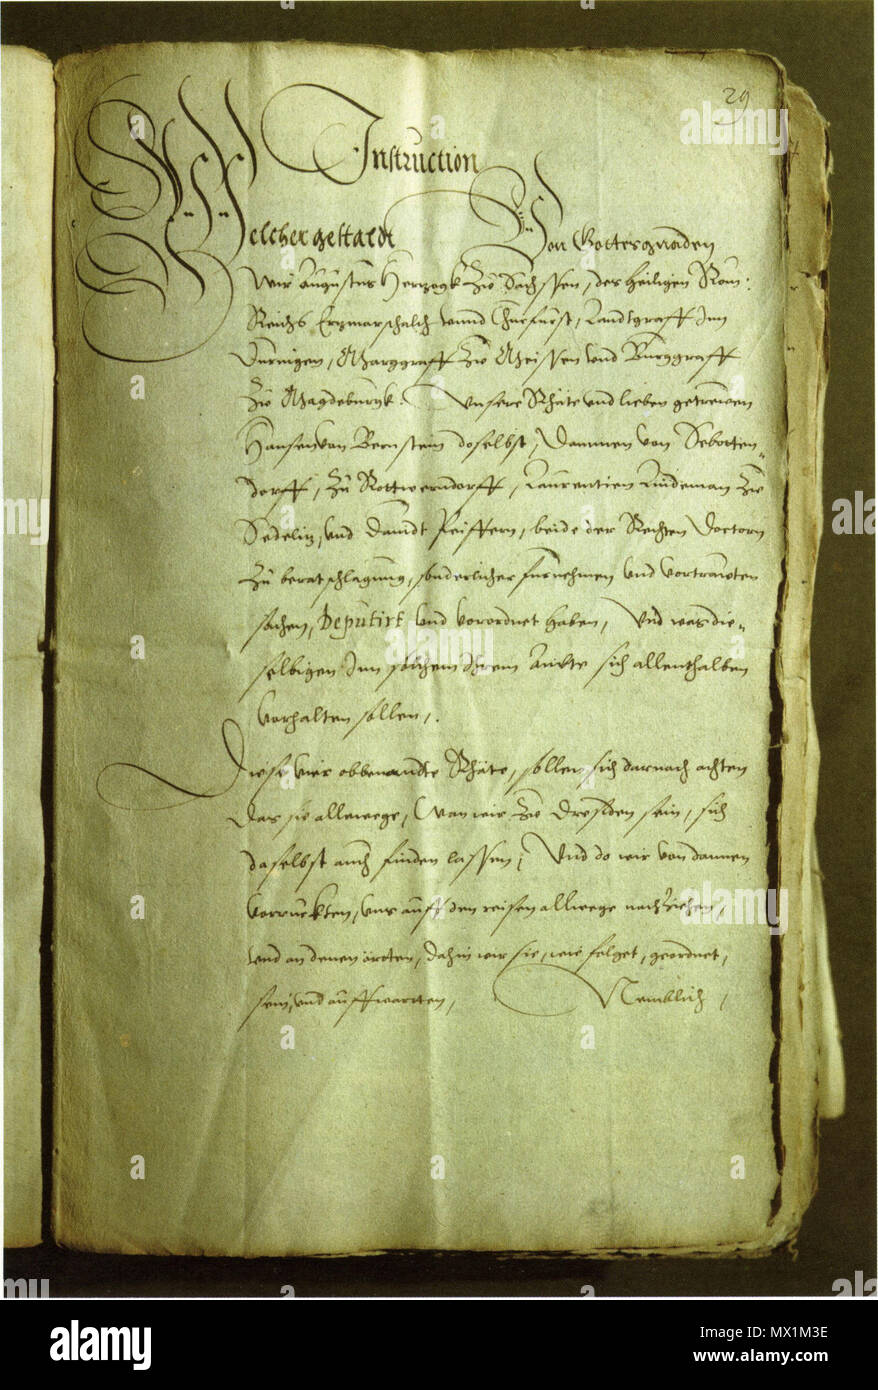 29
Instruction
Welcher gestaldt Von Gottes gnaden
Wir Augustus Hertzogk zu Sachssen, des heiligen Röm:
Reichs Ertzmarschalch unnd Churfurst, Landtgraff Inn
Duringen, Marggraff zu Meissen und Burggraff
zu Magdeburgk. Unsere Rhäte und lieben getrewen
Hansen von Bernstein doselbst, Dammen von Sebotten-
dorff, zu Rottwerndorff, Laurentien Lindeman zu
Sedelitz, und Dauidt Peiffern, beide der Rechten Doctorn
zu beratschlagung, sonderlicher furnehmen und vortrauten
sachen, Deputirt und vorordnet haben, Und was die-
selbigen Inn solchem Ihrem Ambte sich allenthalben
vorhalten sollen.
Diese vier obbenandte Rhäte, sollen sich darnach achten
Das sie allewege, Wan wir zu Dresden sein, sich
daselbst auch finden lassen, Und do wir von dannen
vorruckten, uns auff den reisen allwege nachziehen,
und an denen örten, dahin wir sie, wie folget, geordnet,
sein, und auffwartten, Nemblich,
alamy
Image ID: MX1M3E
www.alamy.com